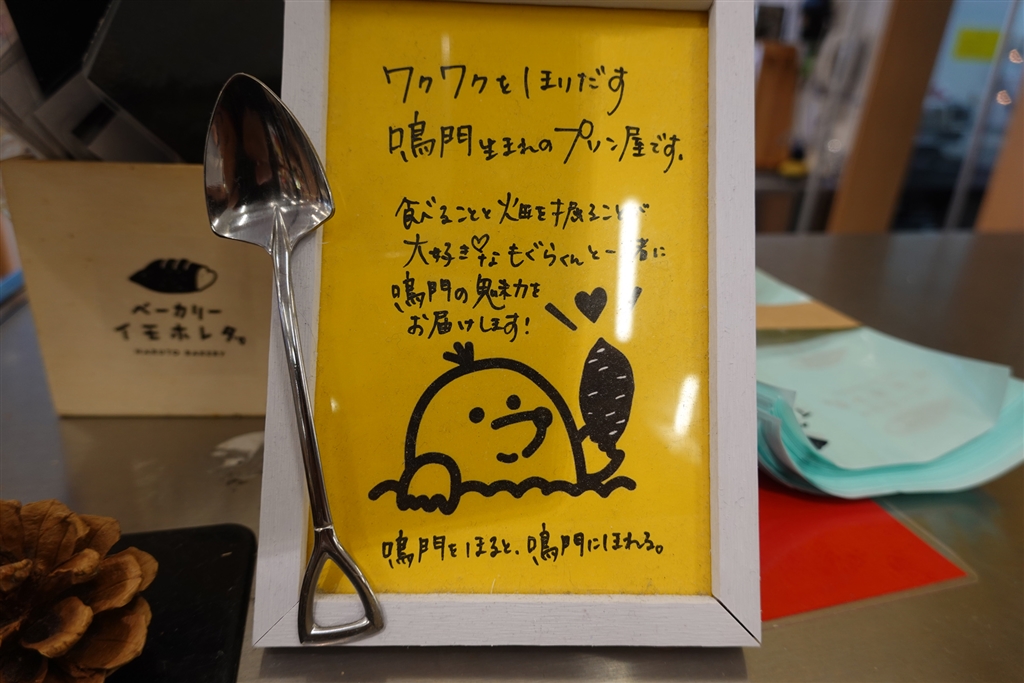 ワクワクをほりだす
鳴門生まれのプリン屋です。
食べることと畑を掘ることが
大好き♡なもぐらくんと一緒に
鳴門の魅力を
お届けします!
鳴門をほると、鳴門にほれる。
ベーカリー
イモホレタ。
NARUTO BAKERY